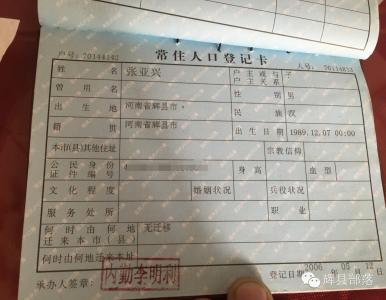 常住人口登记卡
户号:
人号:
姓名 张亚兴 户主或与户主关系 子
曾用名 性别 男
出生地 河南省辉县市 民族 汉
籍贯 河南省辉县市 出生日期 1989.12.07 00:00
本市(县)其他住址 宗教信仰
公民身份证件编号 身高 血型
文化程度 婚姻状况 兵役状况
服务处所 职业
何时由何地迁来本市(县) 无迁移
何时由何地迁来本址
承办人签章: 内勤李明利 登记日期: 2006 05 12
辉县部落